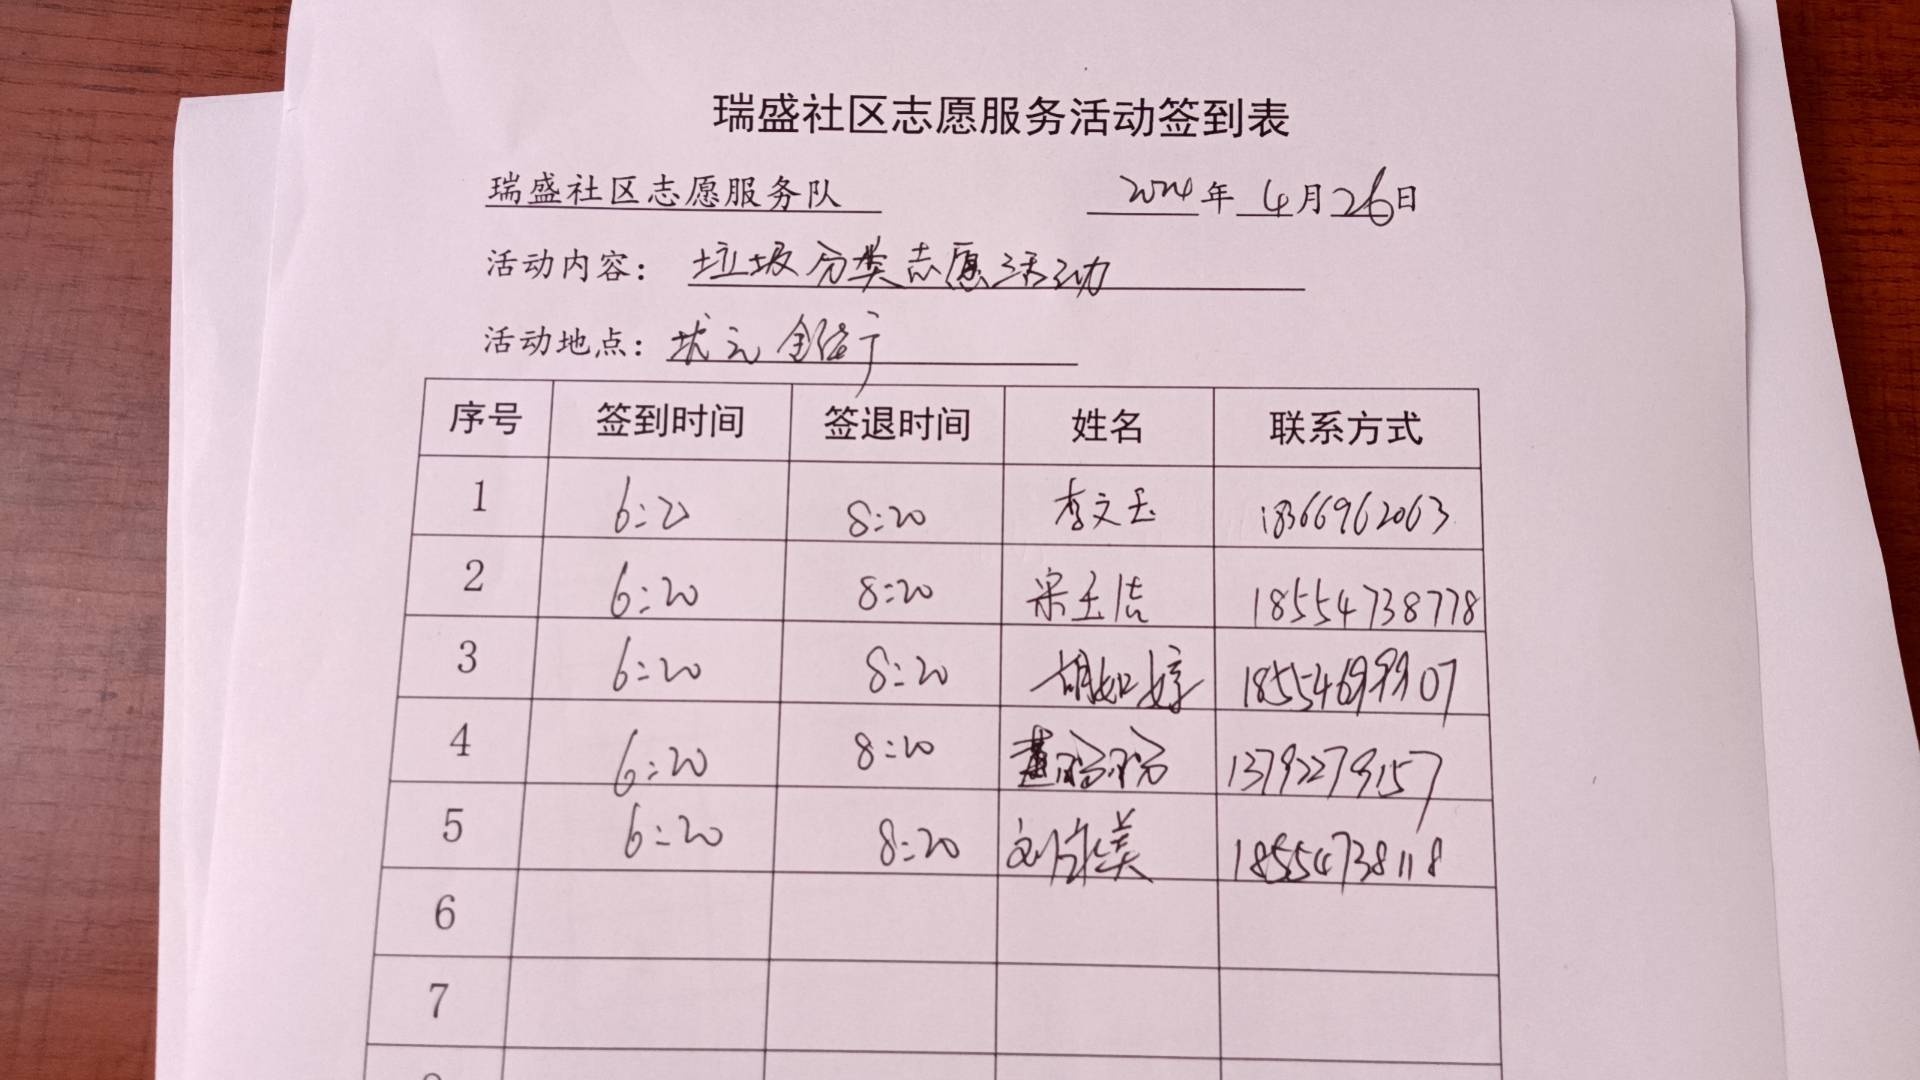 瑞盛社区志愿服务活动签到表
瑞盛社区志愿服务队 2024年4月26日
活动内容: 垃圾分类志愿活动
活动地点: 状元
序号 签到时间 签退时间 姓名 联系方式
1 6:20 8:20 李文玉 18366962063
2 6:20 8:20 宋玉洁 18554738778
3 6:20 8:20 胡如婷 18554699907
4 6:20 8:20 13792279157
5 6:20 8:20 刘美 18554738118
6
7